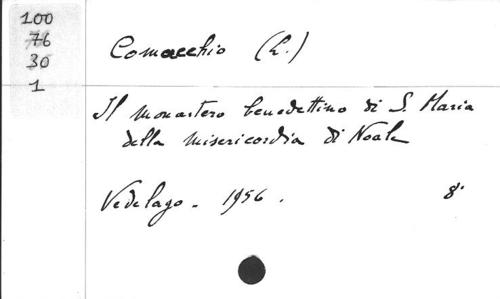 100
76
30
1
Comacchio (L.)
Il monastero benedettino di S. Maria
della misericordia di Noale
Vedelago - 1956. 8°